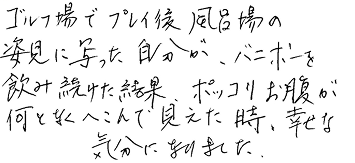 ゴルフ場でプレイ後風呂場の
姿見に写った自分が、バニボーを
飲み続けた結果、ポッコリお腹が
何となくへこんで見えた時、幸せな
気分になりました。